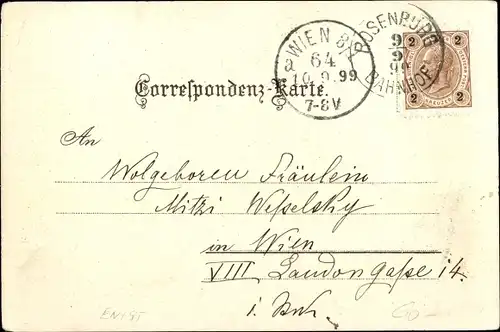 WIEN 8/1
a 64
10 9 99
7-8V
ROSENBURG
9
9
99
BAHNHOF
2 2
KREUZER
2 2
Correspondenz-Karte.
An
Wolgeboren Fräulein
Mitzi Weßelsky
in Wien
VIII Laudongaße 14.